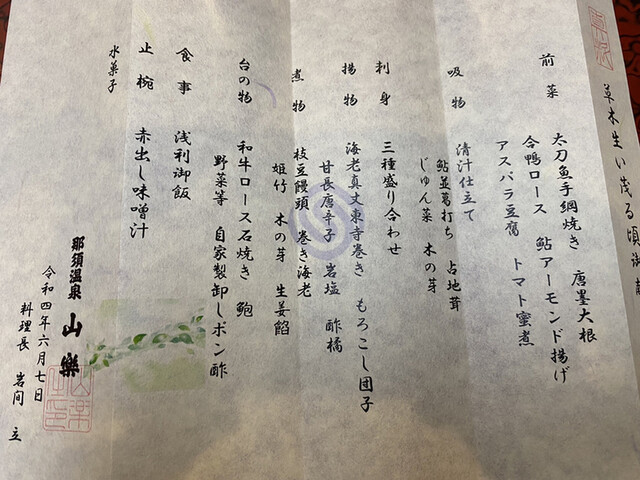 草木生い茂る頃
前菜
太刀魚手綱焼き 唐墨大根
合鴨ロース 鮎アーモンド揚げ
アスパラ豆腐 トマト蜜煮
吸物
清汁仕立て
鮎並葛打ち 占地茸
じゅん菜 木の芽
刺身
三種盛り合わせ
揚物
海老真丈東寺巻き もろこし団子
甘長唐辛子 岩塩 酢橘
煮物
枝豆饅頭 巻き海老
姫竹 木の芽 生姜餡
台の物
和牛ロース石焼き 鮑
野菜等 自家製卸しポン酢
食事
浅利御飯
止椀
赤出し味噌汁
水菓子
那須温泉 山樂
令和四年六月七日
料理長 岩间 立